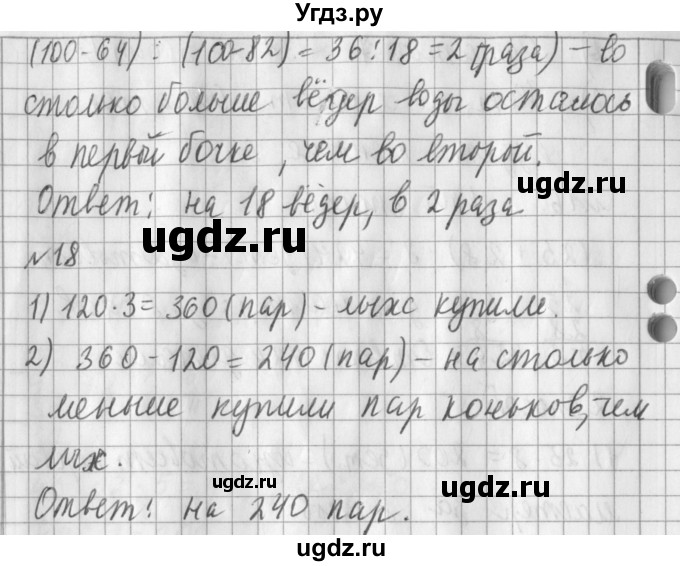 Угдз.ру
(100-64) : (100-82) = 36:18 = 2 (раза) - во
столько больше вёдер воды осталось
в первой бочке, чем во второй.
ugdz.ru
Ответ: на 18 вёдер, в 2 раза
ugdz.ru
№18
1) 120·3 = 360 (пар) - лыж купили.
2) 360 - 120 = 240 (пар) - на столько
меньше купили пар коньков, чем
лыж.
ugdz.ru
ugdz.ru
Ответ: на 240 пар.
ugdz.ru